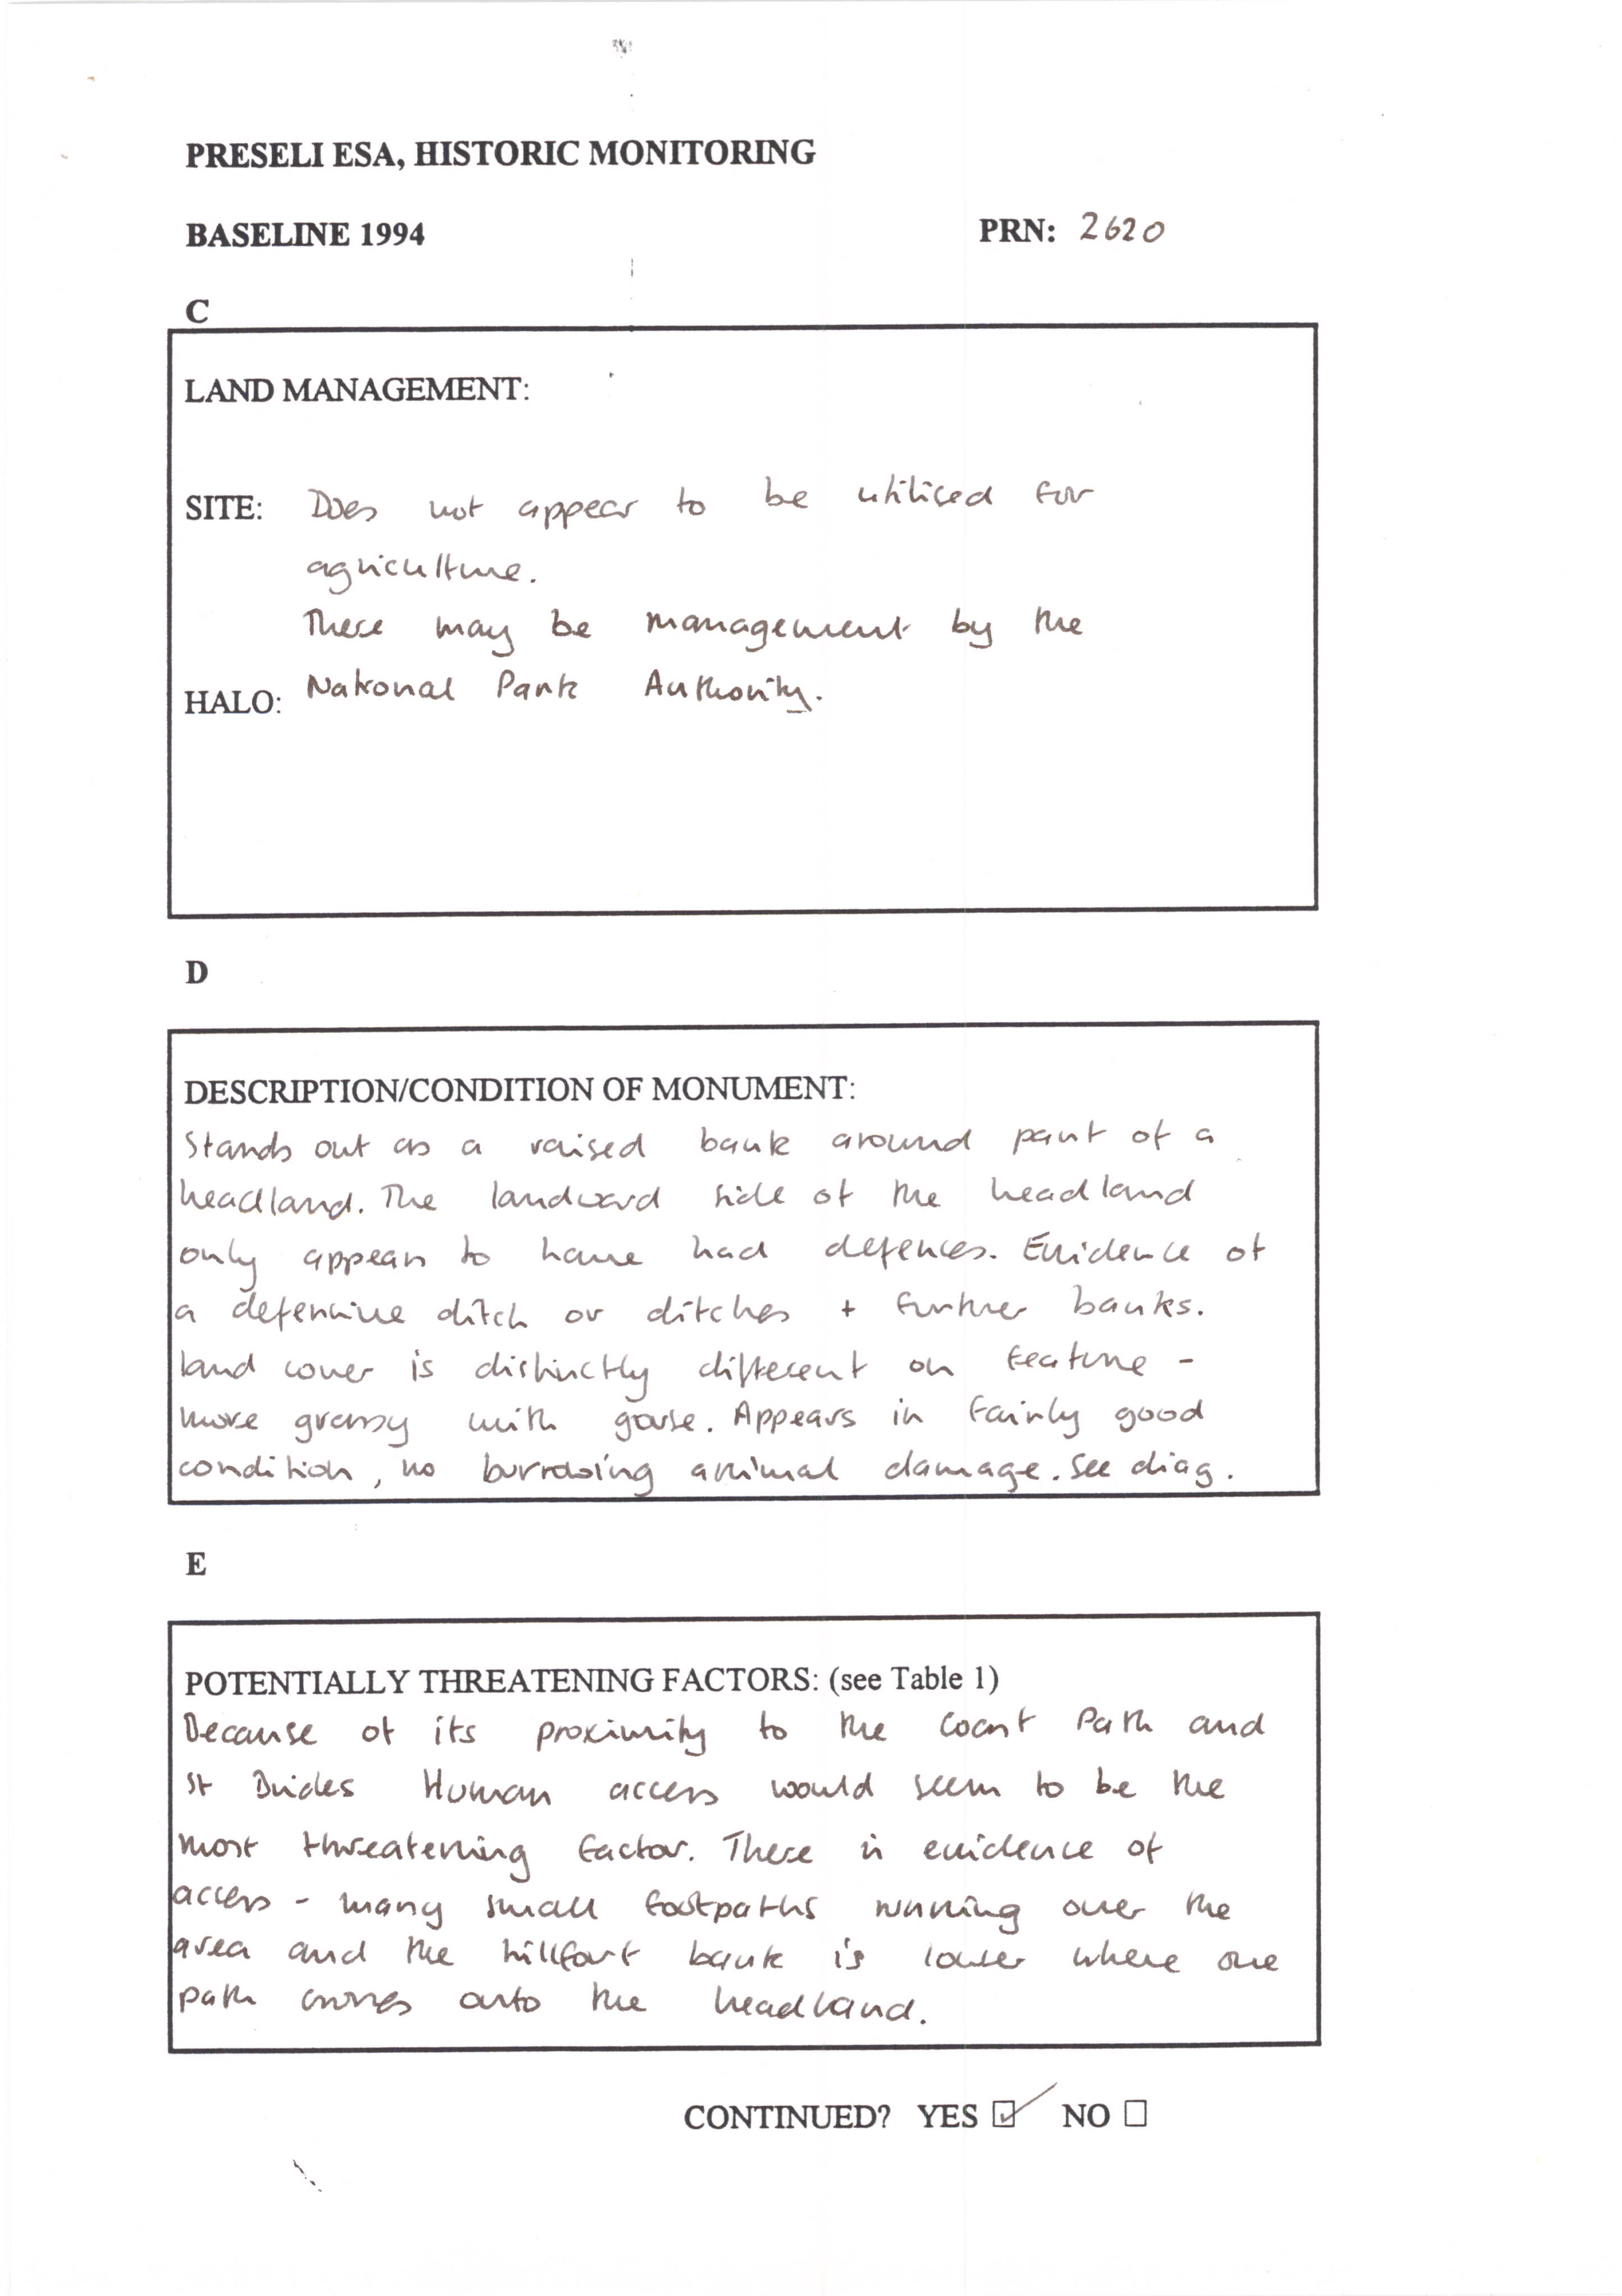 PRESELI ESA, HISTORIC MONITORING
BASELINE 1994
PRN: 2620
C
LAND MANAGEMENT:
SITE: Does not appear to be utilised for
agriculture.
There may be management by the
HALO: National Park Authority.
D
DESCRIPTION/CONDITION OF MONUMENT:
Stands out as a raised bank around part of a
headland. The landward side of the headland
only appears to have had defences. Evidence of
a defensive ditch or ditches + further banks.
land cover is distinctly different on feature -
more grassy with gorse. Appears in fairly good
condition, no burrowing animal damage. See diag.
E
POTENTIALLY THREATENING FACTORS: (see Table 1)
Because of its proximity to the Coast Path and
St Brides Human access would seem to be the
most threatening factor. There is evidence of
access - many small footpaths running over the
area and the hillfort bank is lower where one
path comes onto the headland.
CONTINUED? YES ☑ NO ☐